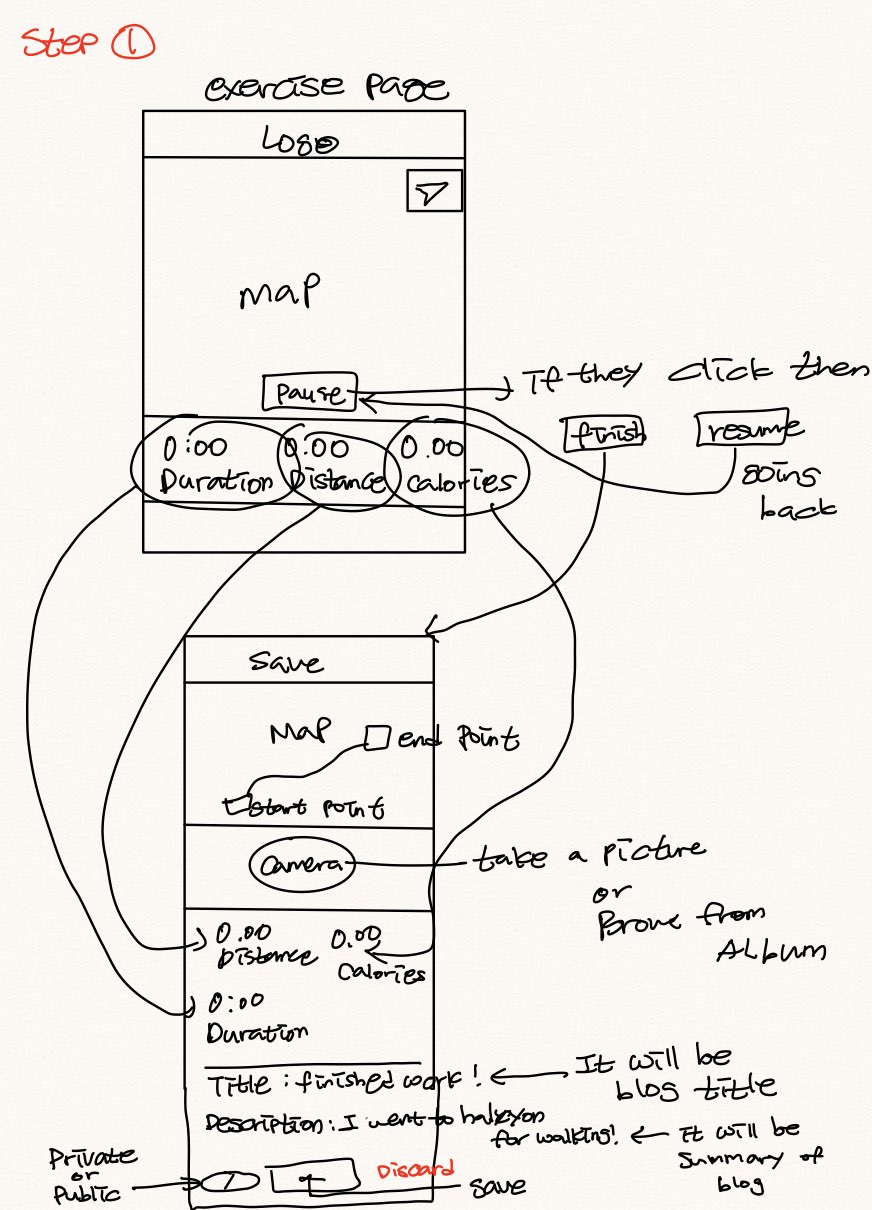 Step ①
exercise page
Logo
map
Pause
If they click then
finish
resume
going
back
0:00
Duration
0.00
Distance
0.00
calories
Save
Map
end point
start point
Camera
take a picture
or
from
ALbum
0.00
Distance
0.00
Calories
0:00
Duration
Title : finished work !
It will be
blog title
Description : I went to halcyon
for walking!
It will be
Summary of
blog
Private
or
Public
Discard
save